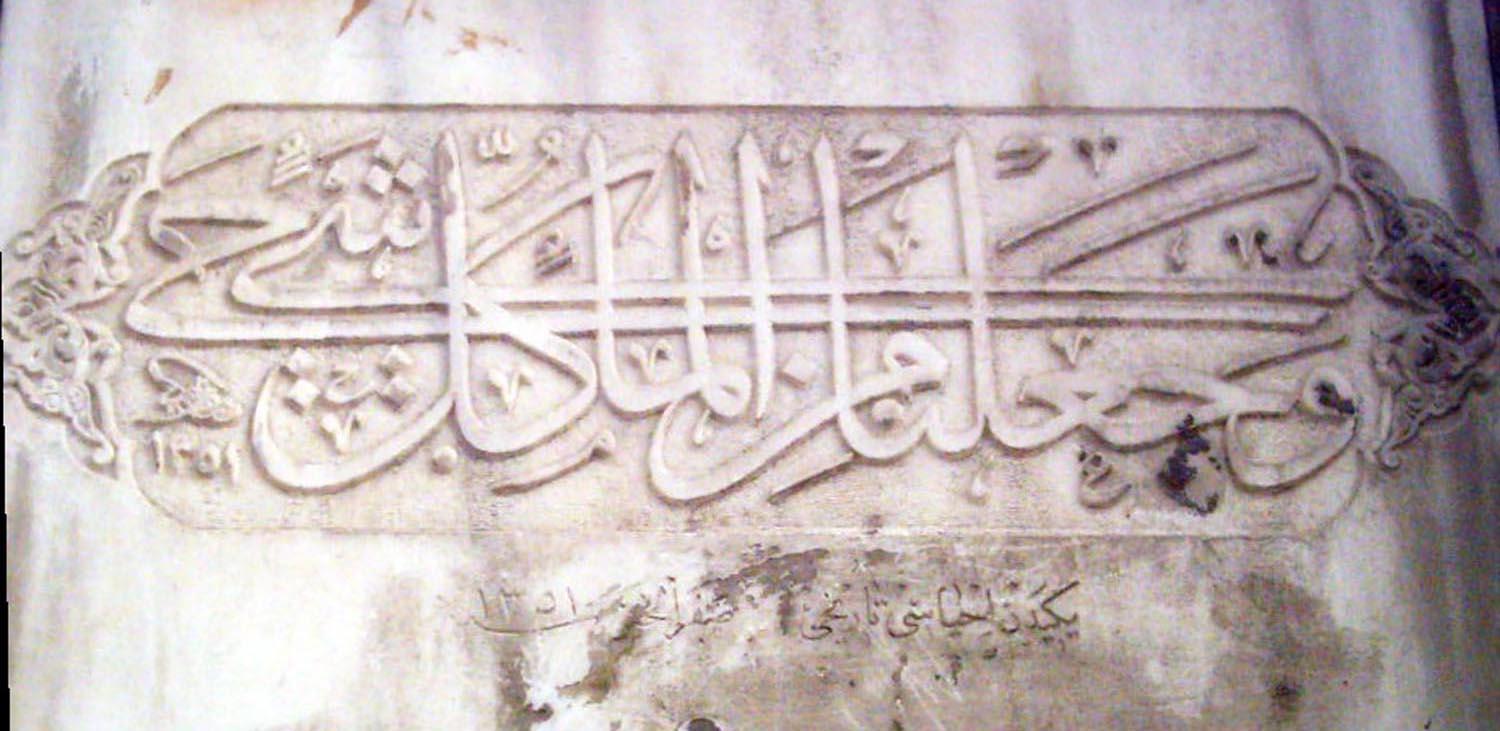 وجعلنا من الماء كل شيء حي
١٣٥١
يكيدن احياسي تاريخي صفر الخير ١٣٥١